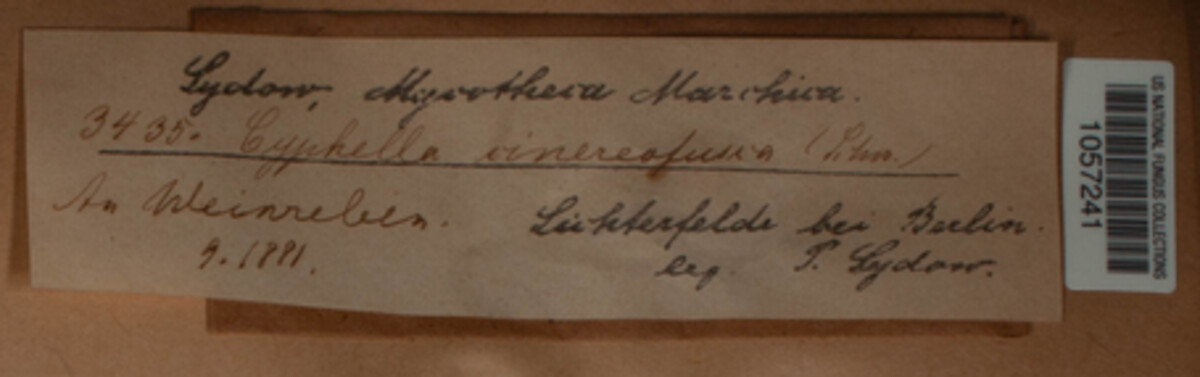 Sydow, Mycotheca Marchica.
3435. Cyphella cinereofusca (Schw.)
An Weinreben. Lichterfelde bei Berlin.
9. 1881. leg. P. Sydow.
US NATIONAL FUNGUS COLLECTIONS
1057241